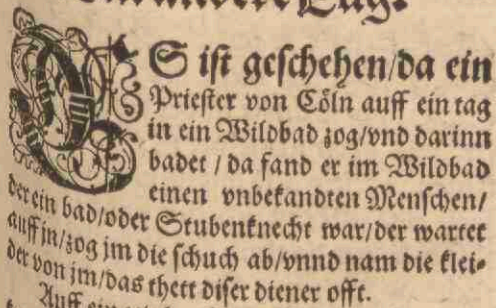 ES ist geschehen/da ein
Priester von Cöln auff ein tag
in ein Wildbad zog/vnd darinn
badet / da fand er im Wildbad
einen vnbekandten Menschen/
der ein bad/oder Stubenknecht war/der wartet
auff jn/zog jm die schuch ab/vnnd nam die klei-
der von jm/das thett diser diener offt.
Auff ein